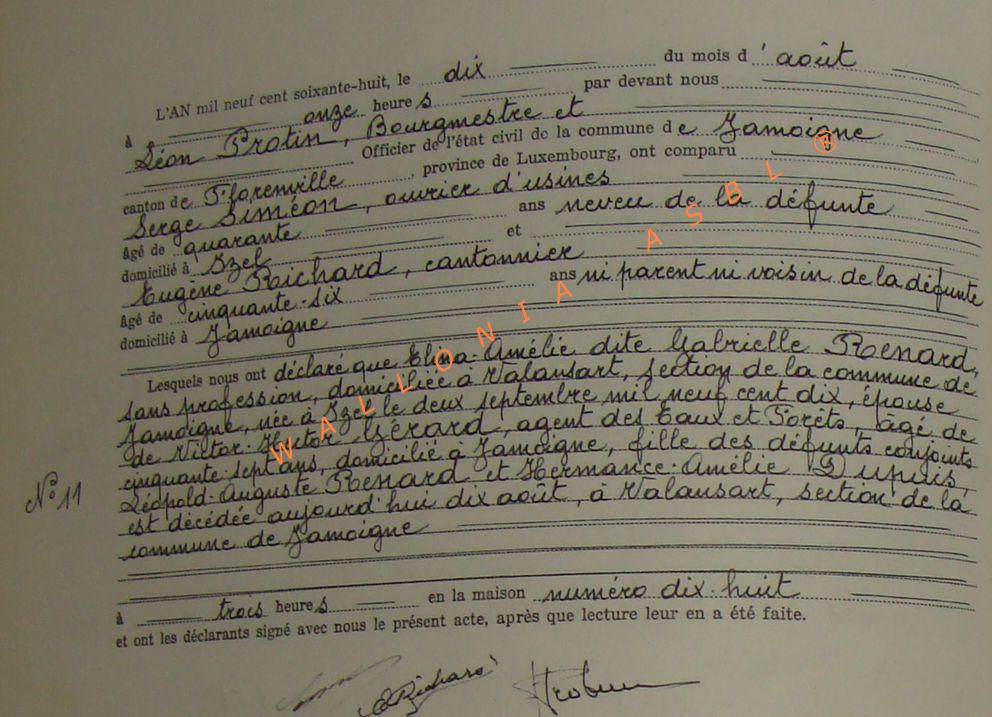 L'AN mil neuf cent soixante-huit, le dix du mois d'août
à onze heures par devant nous
Léon Protin, Bourgmestre et
Officier de l'état civil de la commune de Jamoigne
canton de Florenville, province de Luxembourg, ont comparu
Serge Siméon, ouvrier d'usines
âgé de quarante ans neveu de la défunte
domicilié à Izel et
Eugène Richard, cantonnier
âgé de cinquante-six ans ni parent ni voisin de la défunte
domicilié à Jamoigne
Lesquels nous ont déclaré que Elina-Amélie dite Gabrielle Renard,
sans profession, domiciliée à Valansart, section de la commune de
Jamoigne, née à Izel le deux septembre mil neuf cent dix, épouse
de Victor-Hector Gérard, agent des Eaux et Forêts, âgé de
cinquante sept ans, domicilié à Jamoigne, fille des défunts conjoints
Léopold-Auguste Renard et Hermance-Amélie Dupuis,
N° 11
est décédée aujourd'hui dix août, à Valansart, section de la
commune de Jamoigne
à trois heures en la maison numéro dix-huit
et ont les déclarants signé avec nous le présent acte, après que lecture leur en a été faite.
E Richard
WALLONIA ASBL ®